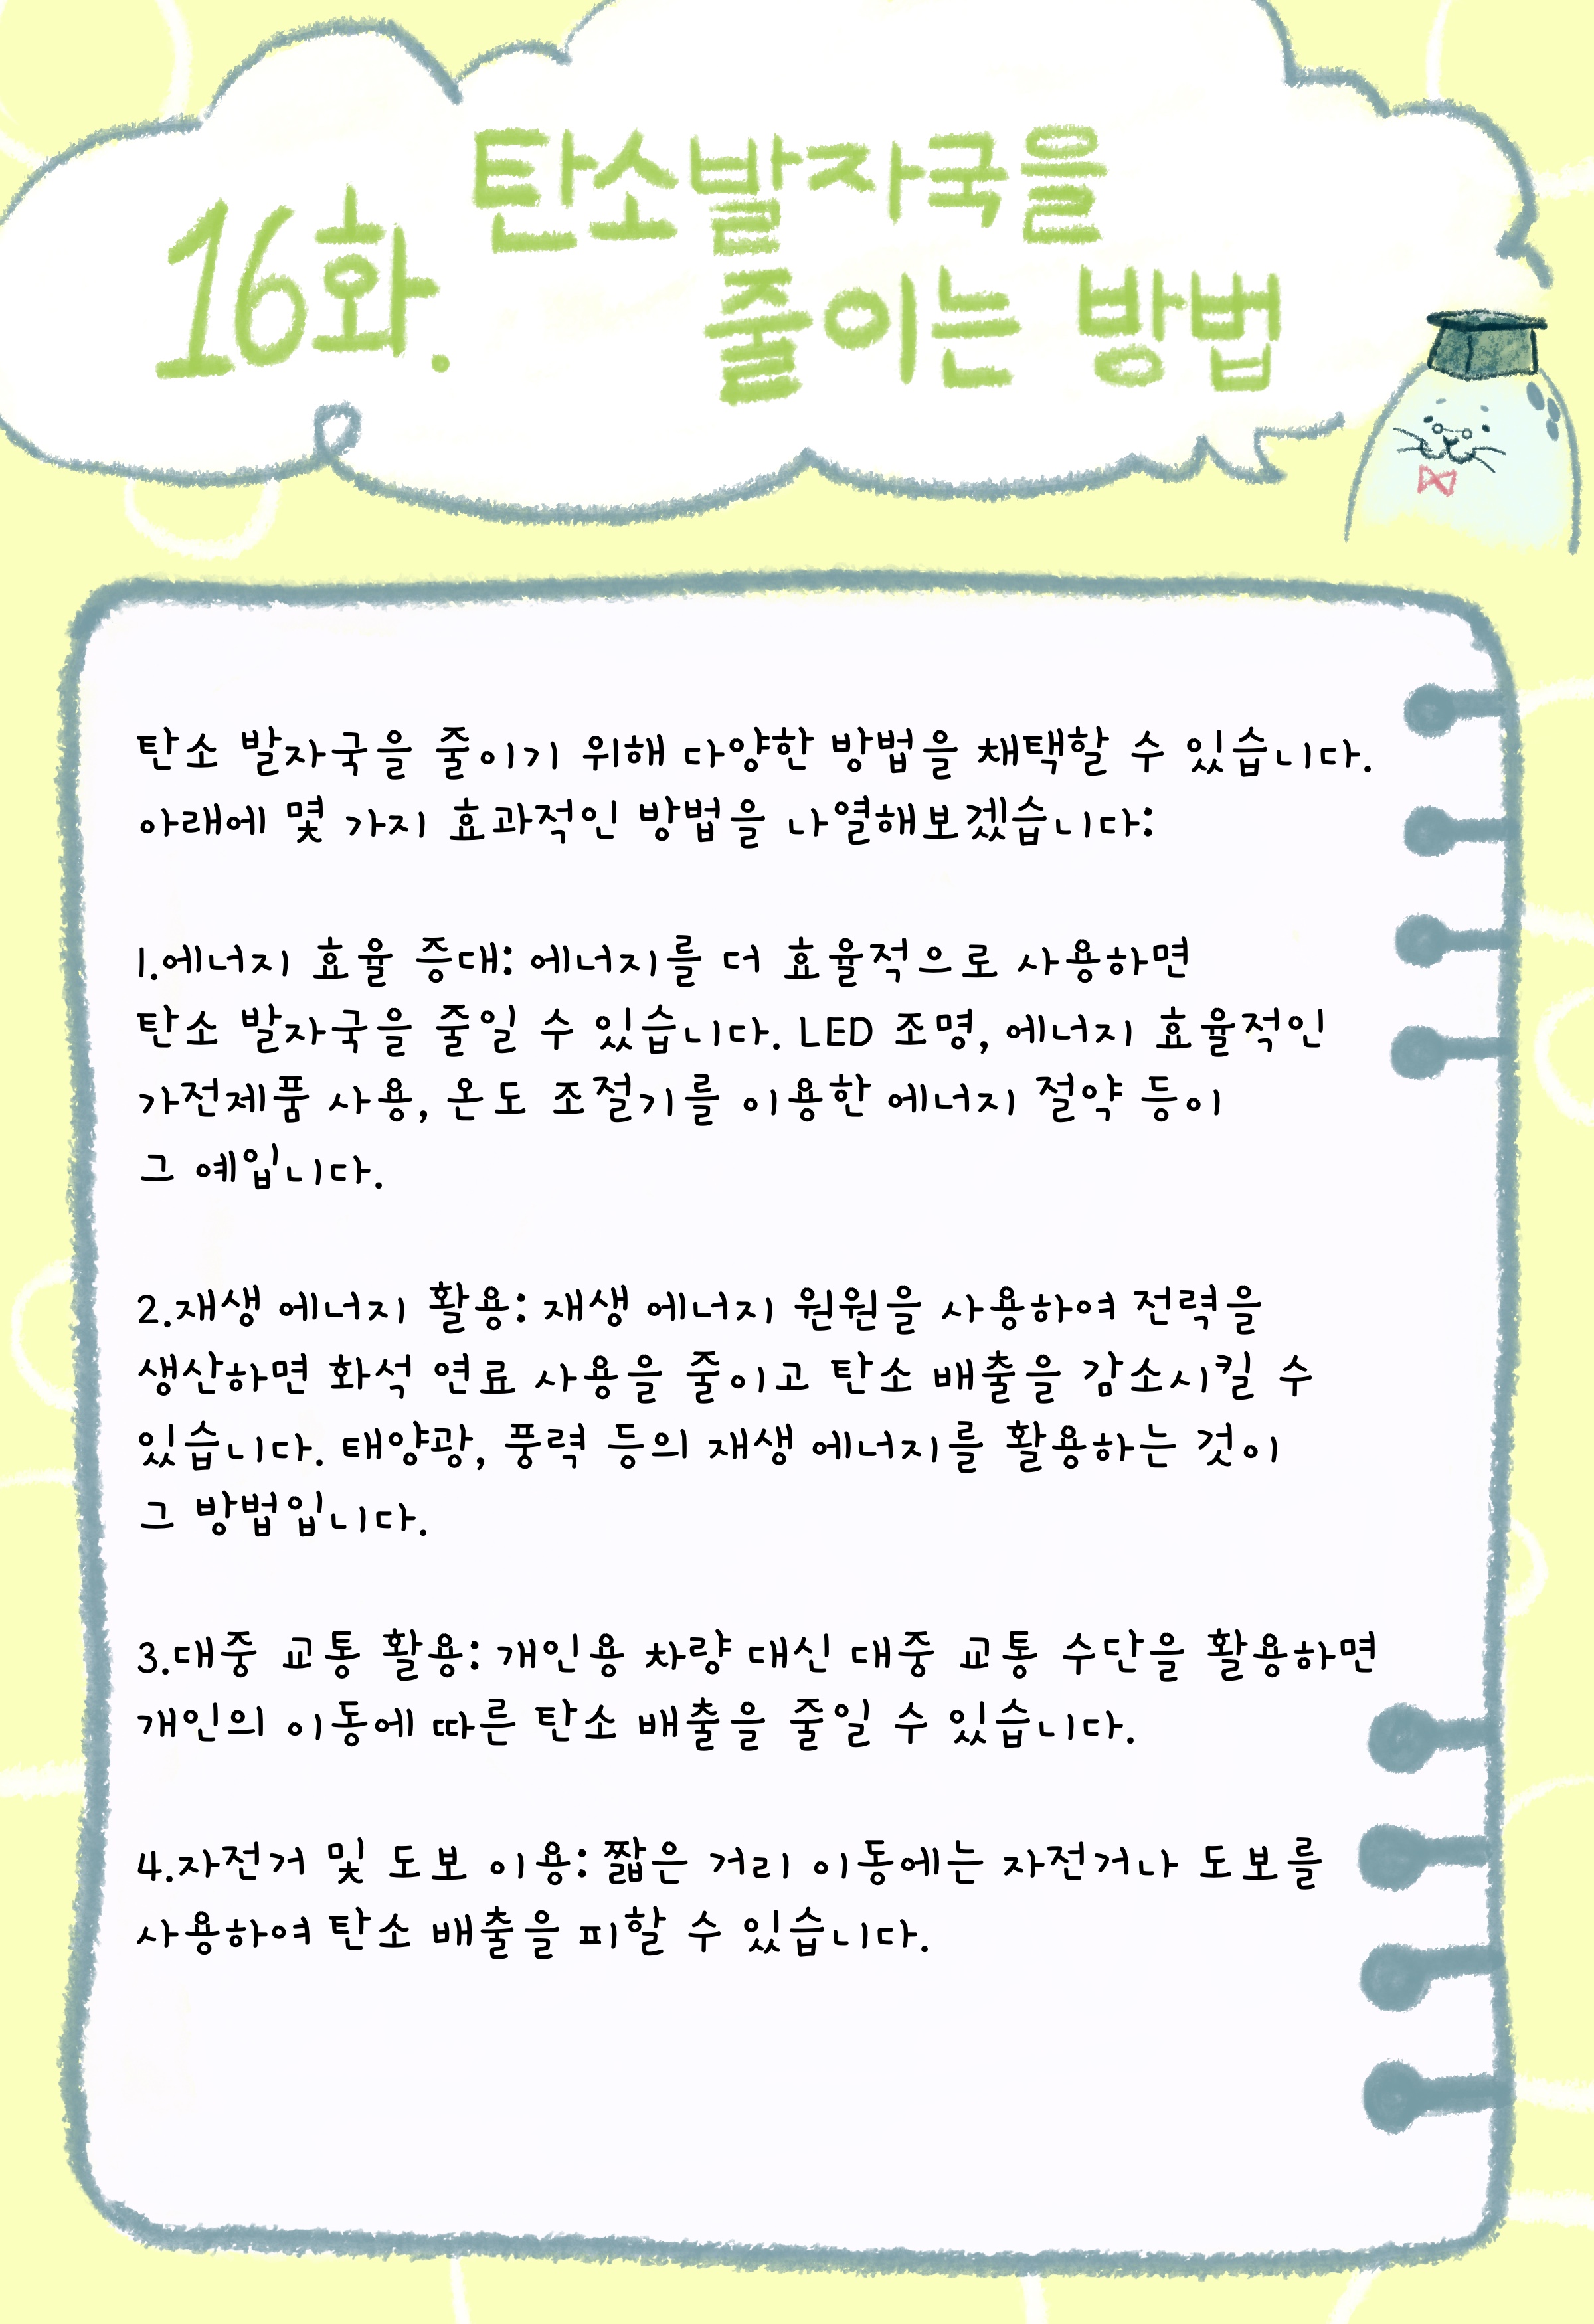 16화. 탄소발자국을
줄이는 방법
탄소 발자국을 줄이기 위해 다양한 방법을 채택할 수 있습니다.
아래에 몇 가지 효과적인 방법을 나열해보겠습니다:
1.에너지 효율 증대: 에너지를 더 효율적으로 사용하면
탄소 발자국을 줄일 수 있습니다. LED 조명, 에너지 효율적인
가전제품 사용, 온도 조절기를 이용한 에너지 절약 등이
그 예입니다.
2.재생 에너지 활용: 재생 에너지 원원을 사용하여 전력을
생산하면 화석 연료 사용을 줄이고 탄소 배출을 감소시킬 수
있습니다. 태양광, 풍력 등의 재생 에너지를 활용하는 것이
그 방법입니다.
3.대중 교통 활용: 개인용 차량 대신 대중 교통 수단을 활용하면
개인의 이동에 따른 탄소 배출을 줄일 수 있습니다.
4.자전거 및 도보 이용: 짧은 거리 이동에는 자전거나 도보를
사용하여 탄소 배출을 피할 수 있습니다.